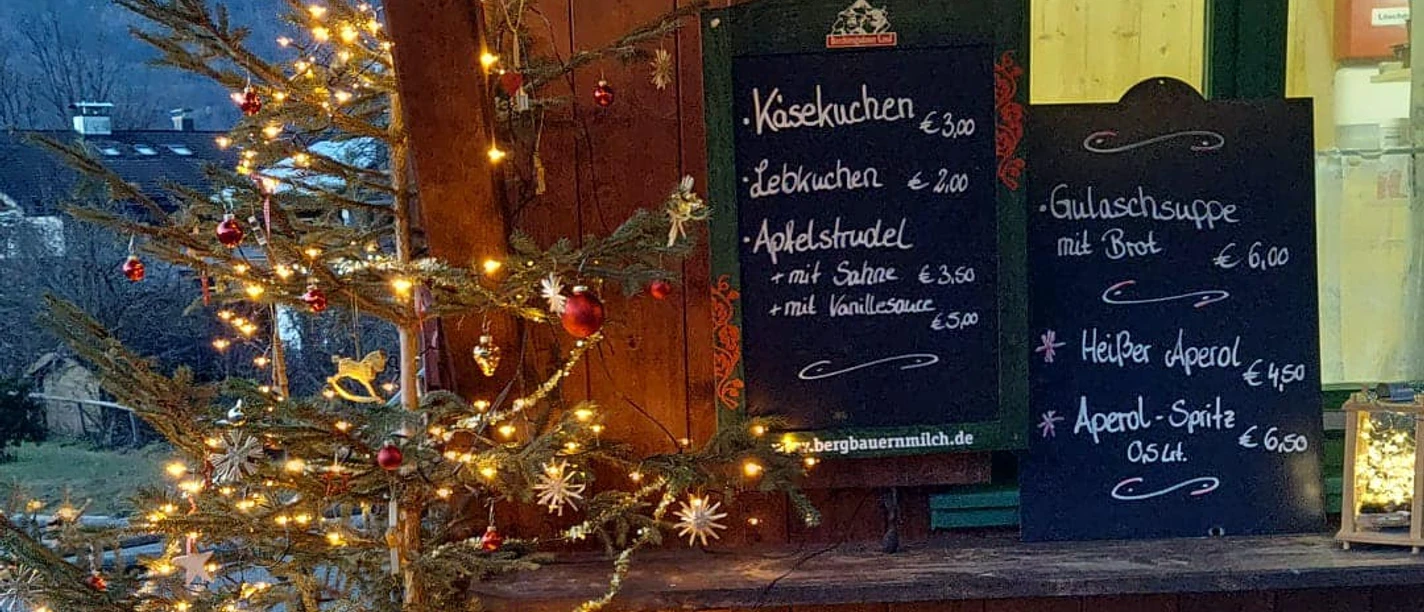 Berchtesgadener Land
·Käsekuchen € 3,00
·Lebkuchen € 2,00
·Apfelstrudel
+ mit Sahne € 3,50
+ mit Vanillesauce
€ 5,00
.bergbauernmilch.de
·Gulaschsuppe
mit Brot € 6,00
Heißer Aperol € 4,50
Aperol-Spritz € 6,50
0,5 Lt.